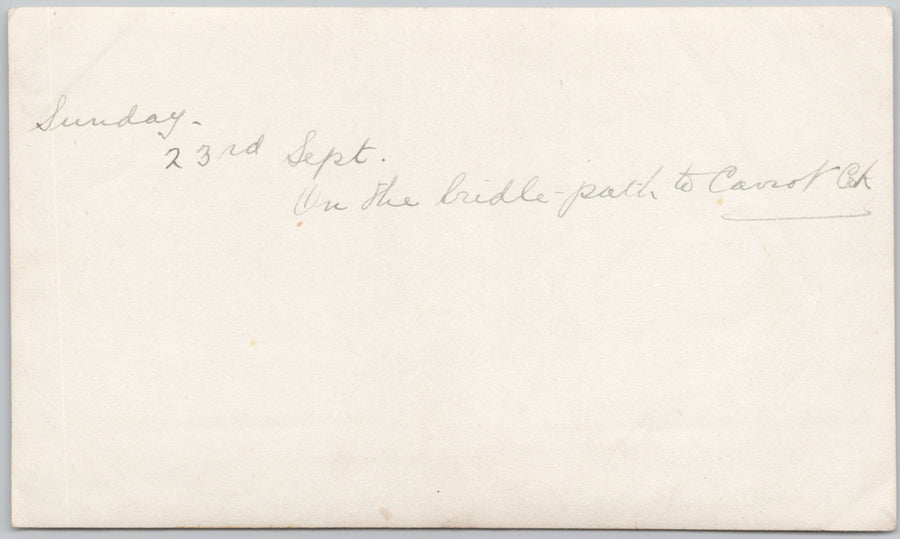 Sunday.
23rd Sept.
On the bridle-path to Carrot Crk